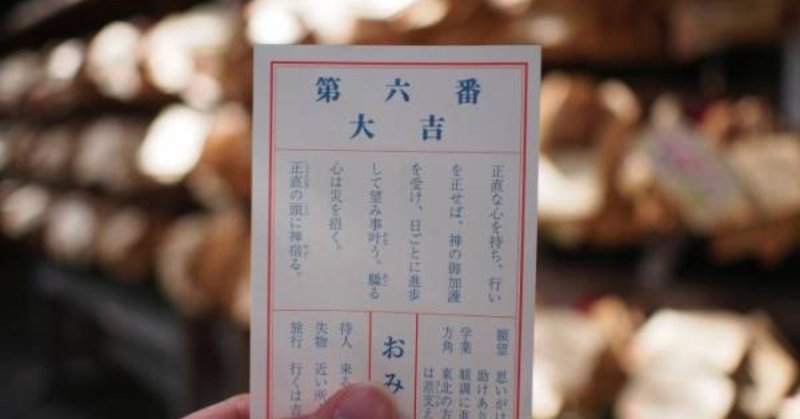 第六番
大吉
正直な心を持ち、行い
を正せば、神の御加護
を受け、日ごとに進歩
して望み事叶う。驕る
心は災を招く。
正直の頭に神宿る。
願望 思いがけ
助けあり
学業 順調に進
方角 東北の方
は差支え
おみ
待人 来
失物 近い所
旅行 行くは吉